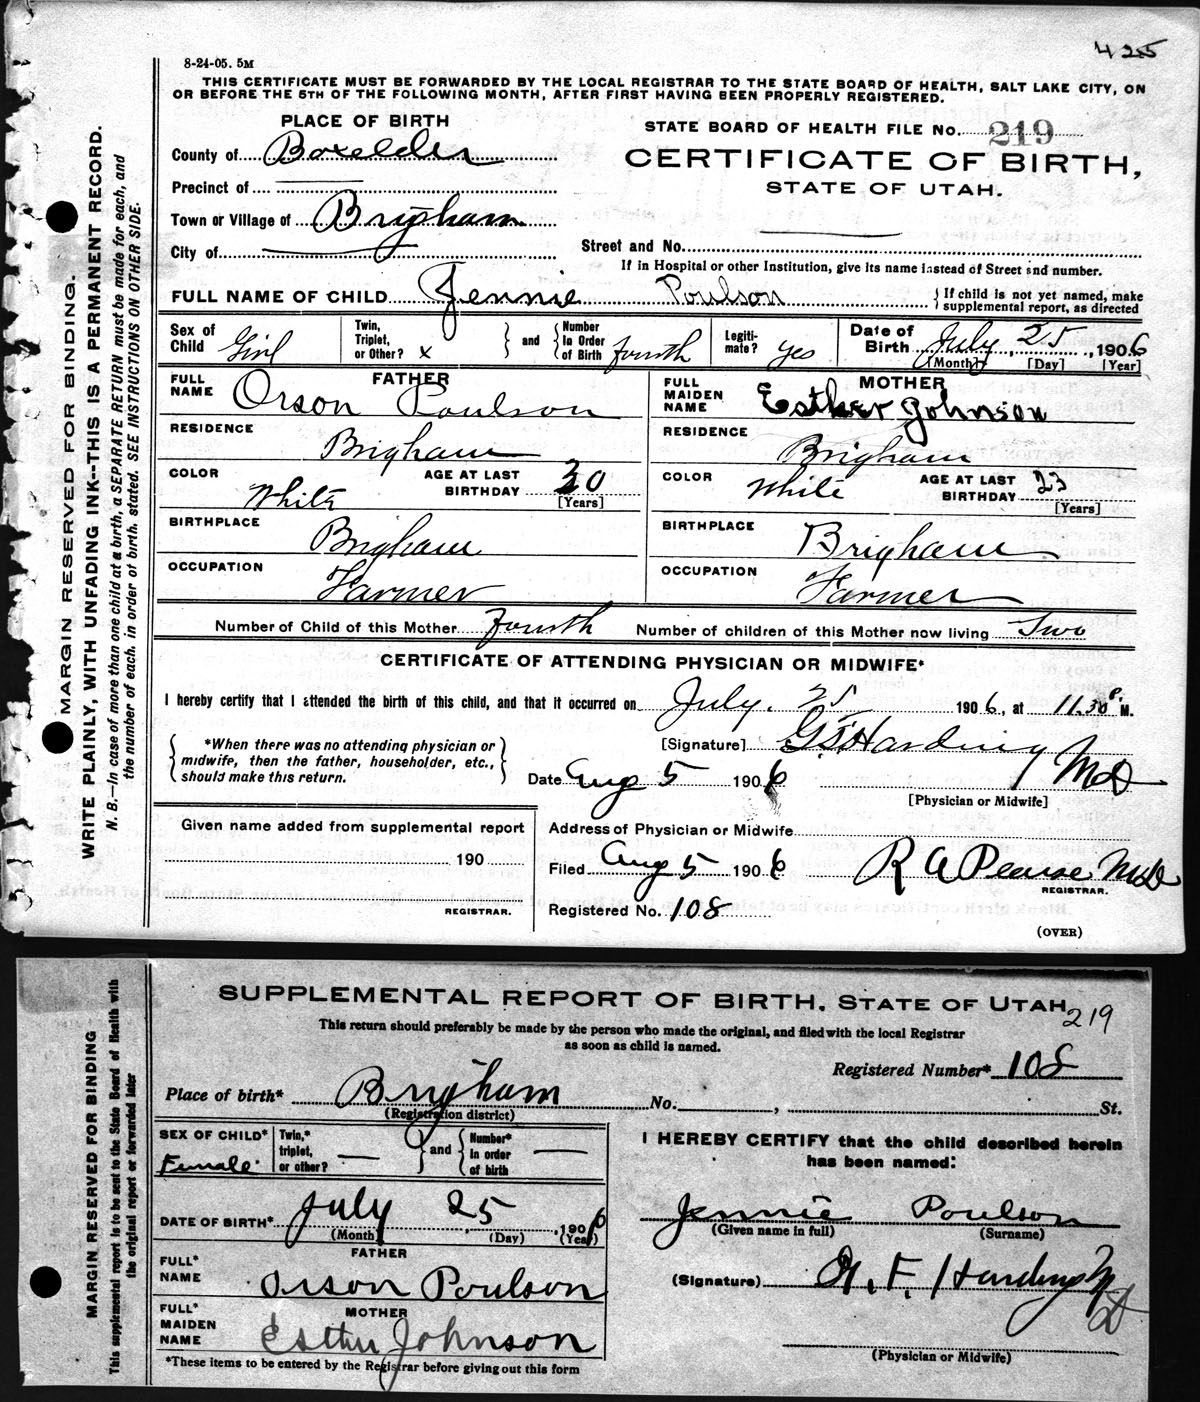 425
8-24-05. 5M
THIS CERTIFICATE MUST BE FORWARDED BY THE LOCAL REGISTRAR TO THE STATE BOARD OF HEALTH, SALT LAKE CITY, ON
OR BEFORE THE 5TH OF THE FOLLOWING MONTH, AFTER FIRST HAVING BEEN PROPERLY REGISTERED.
MARGIN RESERVED FOR BINDING.
WRITE PLAINLY, WITH UNFADING INK--THIS IS A PERMANENT RECORD.
N. B.—In case of more than one child at a birth, a SEPARATE RETURN must be made for each, and
the number of each, in order of birth, stated. SEE INSTRUCTIONS ON OTHER SIDE.
PLACE OF BIRTH
STATE BOARD OF HEALTH FILE No. 219
County of Boxelder
CERTIFICATE OF BIRTH,
Precinct of
STATE OF UTAH.
Town or Village of Brigham
City of
Street and No.
If in Hospital or other Institution, give its name instead of Street and number.
FULL NAME OF CHILD Jennie Poulson
{ If child is not yet named, make
supplemental report, as directed
Sex of Child Girl
Twin, Triplet, or Other? x
} and {
Number In Order of Birth fourth
Legiti-mate? yes
Date of Birth July, 25, 1906
[Month] [Day] [Year]
FATHER
FULL NAME Orson Poulson
MOTHER
FULL MAIDEN NAME Esther Johnson
RESIDENCE Brigham
RESIDENCE Brigham
COLOR White
AGE AT LAST BIRTHDAY 30 [Years]
COLOR White
AGE AT LAST BIRTHDAY 23 [Years]
BIRTHPLACE Brigham
BIRTHPLACE Brigham
OCCUPATION Farmer
OCCUPATION Farmer
Number of Child of this Mother fourth Number of children of this Mother now living Two
CERTIFICATE OF ATTENDING PHYSICIAN OR MIDWIFE*
I hereby certify that I attended the birth of this child, and that it occurred on July. 25 1906, at 11.30 P M.
{ *When there was no attending physician or
midwife, then the father, householder, etc.,
should make this return. }
[Signature] Harding MD
Date Aug 5 1906
[Physician or Midwife]
Given name added from supplemental report
190
REGISTRAR.
Address of Physician or Midwife
Filed Aug 5 1906 R A Pearse MD
REGISTRAR.
Registered No. 108
(OVER)
MARGIN RESERVED FOR BINDING
This supplemental report is to be sent to the State Board of Health with
the original report or forwarded later
SUPPLEMENTAL REPORT OF BIRTH, STATE OF UTAH
219
This return should preferably be made by the person who made the original, and filed with the local Registrar
as soon as child is named.
Registered Number* 108
Place of birth* Brigham No. , St.
(Registration district)
SEX OF CHILD* Female
Twin,* triplet, or other? —
} and {
Number* In order of birth —
I HEREBY CERTIFY that the child described herein
has been named:
DATE OF BIRTH* July 25, 1906
(Month) (Day) (Year)
Jennie Poulson
(Given name in full) (Surname)
FATHER
FULL* NAME Orson Poulson
(Signature) F. Harding MD
MOTHER
FULL* MAIDEN NAME Esther Johnson
(Physician or Midwife)
*These items to be entered by the Registrar before giving out this form